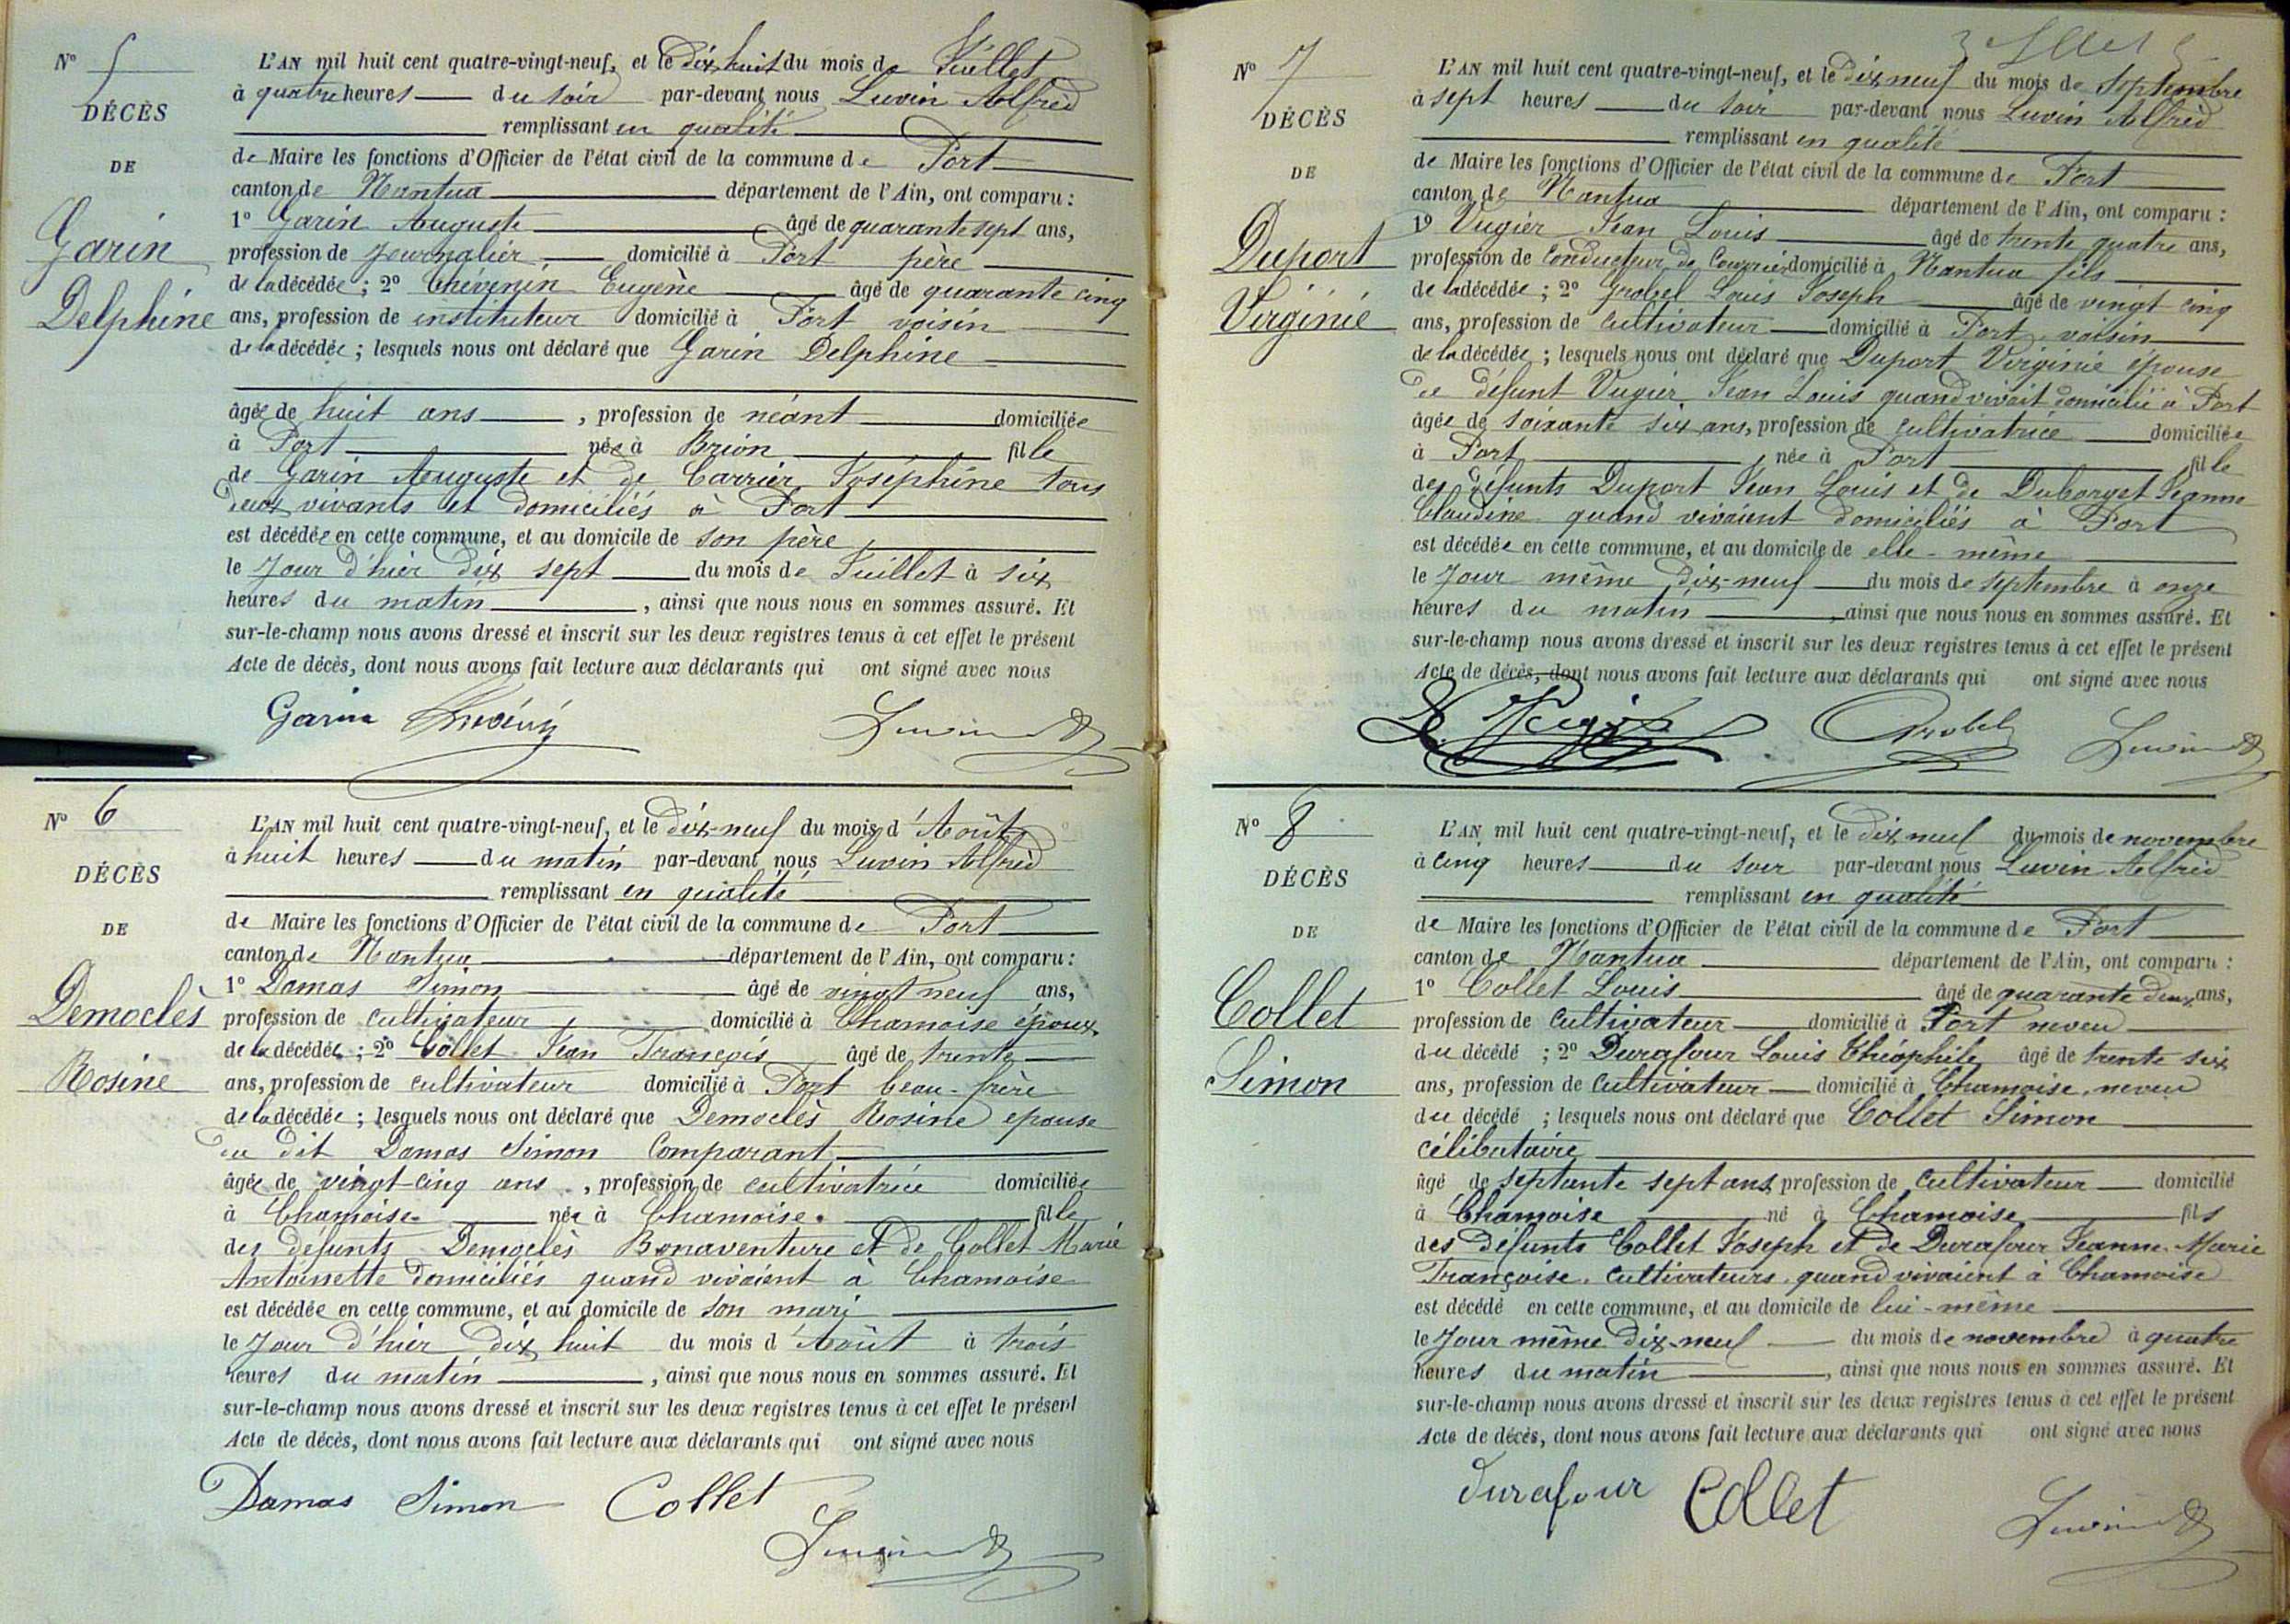 Nº 5
DÉCÈS
DE
Garin
Delphine
L'AN mil huit cent quatre-vingt-neuf, et le dix huit du mois de Juillet
à quatre heures du soir par-devant nous Luvin Alfred
remplissant en qualité
de Maire les fonctions d'Officier de l'état civil de la commune de Port
canton de Nantua département de l'Ain, ont comparu :
1º Garin Auguste âgé de quarante sept ans,
profession de journalier domicilié à Port père
de la décédée ; 2º Chévenin Eugène âgé de quarante cinq
ans, profession de instituteur domicilié à Port voisin
de la décédée ; lesquels nous ont déclaré que Garin Delphine
âgée de huit ans , profession de néant domiciliée
à Port née à Brion fille
de Garin Auguste et de Carrier Joséphine tous
deux vivants et domiciliés à Port
est décédée en cette commune, et au domicile de son père
le Jour d'hier dix sept du mois de Juillet à six
heures du matin , ainsi que nous nous en sommes assuré. Et
sur-le-champ nous avons dressé et inscrit sur les deux registres tenus à cet effet le présent
Acte de décès, dont nous avons fait lecture aux déclarants qui ont signé avec nous
Garin Chévenin Luvin
Nº 6
DÉCÈS
DE
Democlès
Rosine
L'AN mil huit cent quatre-vingt-neuf, et le dix-neuf du mois d'Août
à huit heures du matin par-devant nous Luvin Alfred
remplissant en qualité
de Maire les fonctions d'Officier de l'état civil de la commune de Port
canton de Nantua département de l'Ain, ont comparu :
1º Damas Simon âgé de vingt neuf ans,
profession de cultivateur domicilié à Chamoise époux
de la décédée ; 2º Collet Jean François âgé de trente
ans, profession de cultivateur domicilié à Port beau-frère
de la décédée ; lesquels nous ont déclaré que Democlès Rosine épouse
du dit Damas Simon Comparant
âgée de vingt-cinq ans , profession de cultivatrice domiciliée
à Chamoise née à Chamoise fille
des défunts Democlès Bonaventure et de Collet Marie
Antoinette domiciliés quand vivaient à Chamoise
est décédée en cette commune, et au domicile de son mari
le Jour d'hier dix huit du mois d'Août à trois
heures du matin , ainsi que nous nous en sommes assuré. Et
sur-le-champ nous avons dressé et inscrit sur les deux registres tenus à cet effet le présent
Acte de décès, dont nous avons fait lecture aux déclarants qui ont signé avec nous
Damas Simon Collet
Luvin
Nº 7
DÉCÈS
DE
Duport
Virginie
L'AN mil huit cent quatre-vingt-neuf, et le dix neuf du mois de Septembre
à sept heures du soir par-devant nous Luvin Alfred
remplissant en qualité
de Maire les fonctions d'Officier de l'état civil de la commune de Port
canton de Nantua département de l'Ain, ont comparu :
1º Vugier Jean Louis âgé de trente quatre ans,
profession de Conducteur de Courrier domicilié à Nantua fils
de la décédée ; 2º Grobel Louis Joseph âgé de vingt cinq
ans, profession de cultivateur domicilié à Port, voisin
de la décédée ; lesquels nous ont déclaré que Duport Virginie épouse
de défunt Vugier Jean Louis quand vivait domicilié à Port
âgée de soixante six ans, profession de cultivatrice domiciliée
à Port née à Port fille
des défunts Duport Jean Louis et de Duborget Jeanne
Claudine quand vivaient domiciliés à Port
est décédée en cette commune, et au domicile de elle-même
le Jour même dix-neuf du mois de septembre à onze
heures du matin , ainsi que nous nous en sommes assuré. Et
sur-le-champ nous avons dressé et inscrit sur les deux registres tenus à cet effet le présent
Acte de décès, dont nous avons fait lecture aux déclarants qui ont signé avec nous
Grobel Luvin
Nº 8
DÉCÈS
DE
Collet
Simon
L'AN mil huit cent quatre-vingt-neuf, et le dix neuf du mois de novembre
à cinq heures du soir par-devant nous Luvin Alfred
remplissant en qualité
de Maire les fonctions d'Officier de l'état civil de la commune de Port
canton de Nantua département de l'Ain, ont comparu :
1º Collet Louis âgé de quarante deux ans,
profession de cultivateur domicilié à Port neveu
du décédé ; 2º Durafour Louis Théophile âgé de trente six
ans, profession de cultivateur domicilié à Chamoise, neveu
du décédé ; lesquels nous ont déclaré que Collet Simon
célibataire
âgé de septante sept ans, profession de cultivateur domicilié
à Chamoise né à Chamoise fils
des défunts Collet Joseph et de Durafour Jeanne Marie
Françoise, cultivateurs, quand vivaient à Chamoise
est décédé en cette commune, et au domicile de lui-même
le Jour même dix-neuf du mois de novembre à quatre
heures du matin , ainsi que nous nous en sommes assuré. Et
sur-le-champ nous avons dressé et inscrit sur les deux registres tenus à cet effet le présent
Acte de décès, dont nous avons fait lecture aux déclarants qui ont signé avec nous
Durafour Collet
Luvin